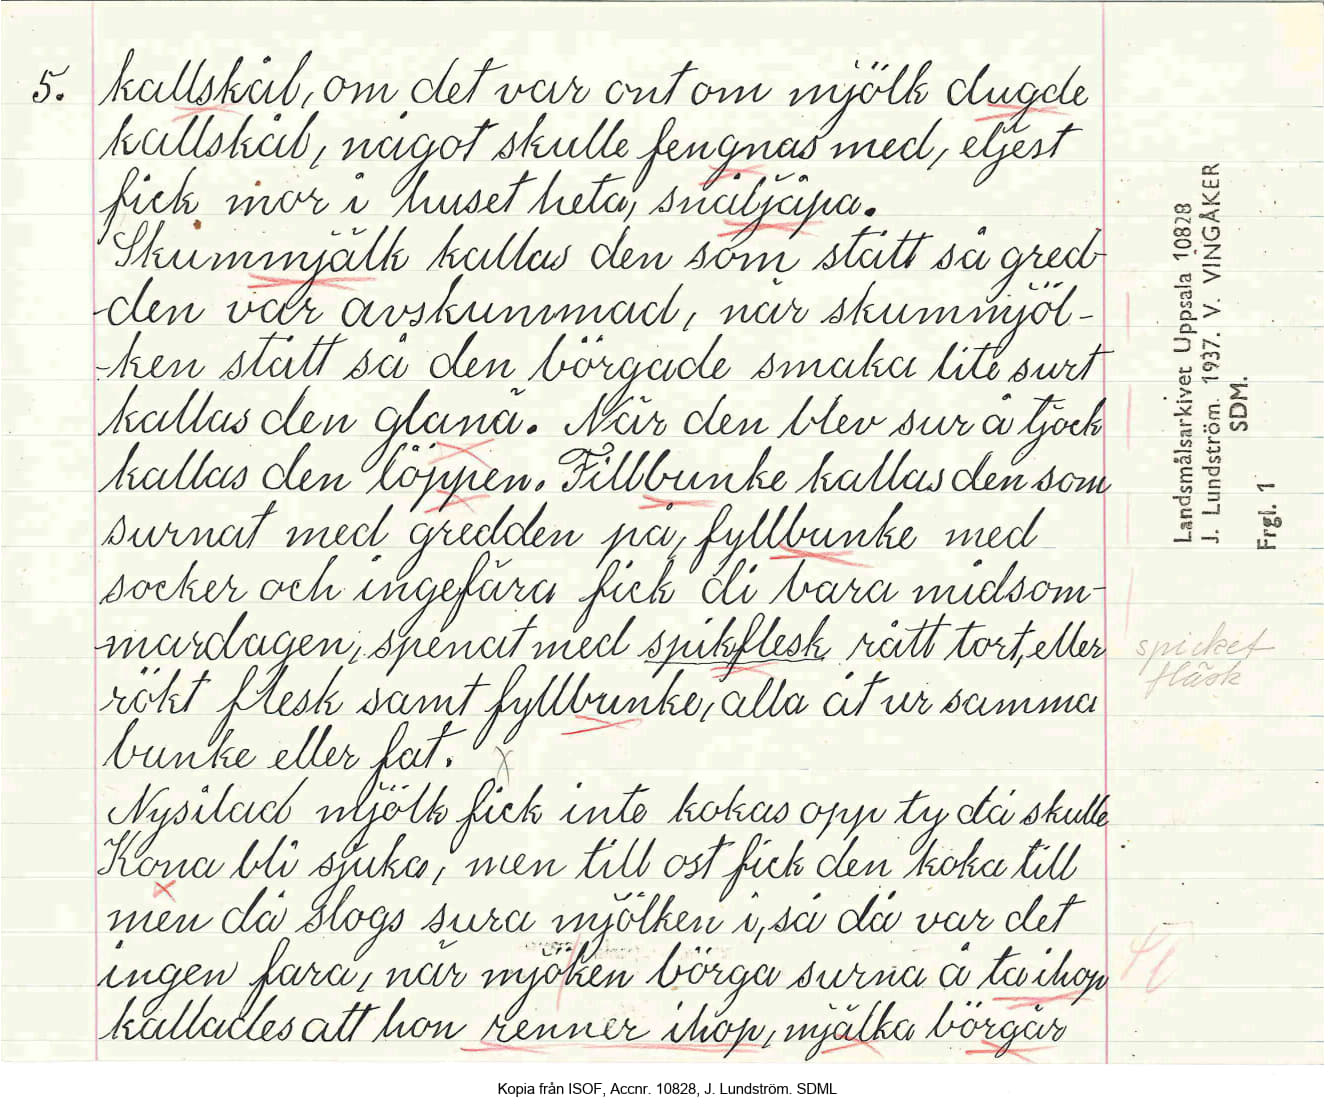 5. kallskål, om det var ont om mjölk dugde
kallskål, något skulle fengnas med, eljest
fick mor i huset heta, snåljåpa.
Skummjälk kallas den som stått så gred-
-den var avskummad, når skummjöl-
-ken stått så den börgade smaka lite surt
kallas den glanä. När den blev sur å tjock
kallas den löppen. Fillbunke kallas den som
surnat med gredden på, fyllbunke med
socker och ingefära fick di bara midsom-
-mardagen, spenat med spikflesk rått tort, eller
spicket
fläsk
rökt flesk samt fyllbunke, alla åt ur samma
bunke eller fat.
Nysilad mjölk fick inte kokas opp ty då skulle
Kona bli sjuka, men till ost fick den koka till
men då slogs sura mjölken i, så då var det
ingen fara, når mjöken börga surna å ta ihop
kallades att hon renner ihop, mjälka börgär
Landsmålsarkivet Uppsala 10828
J. Lundström. 1937. V. VINGÅKER
SDM.
Frgl. 1
Kopia från ISOF, Accnr. 10828, J. Lundström. SDML